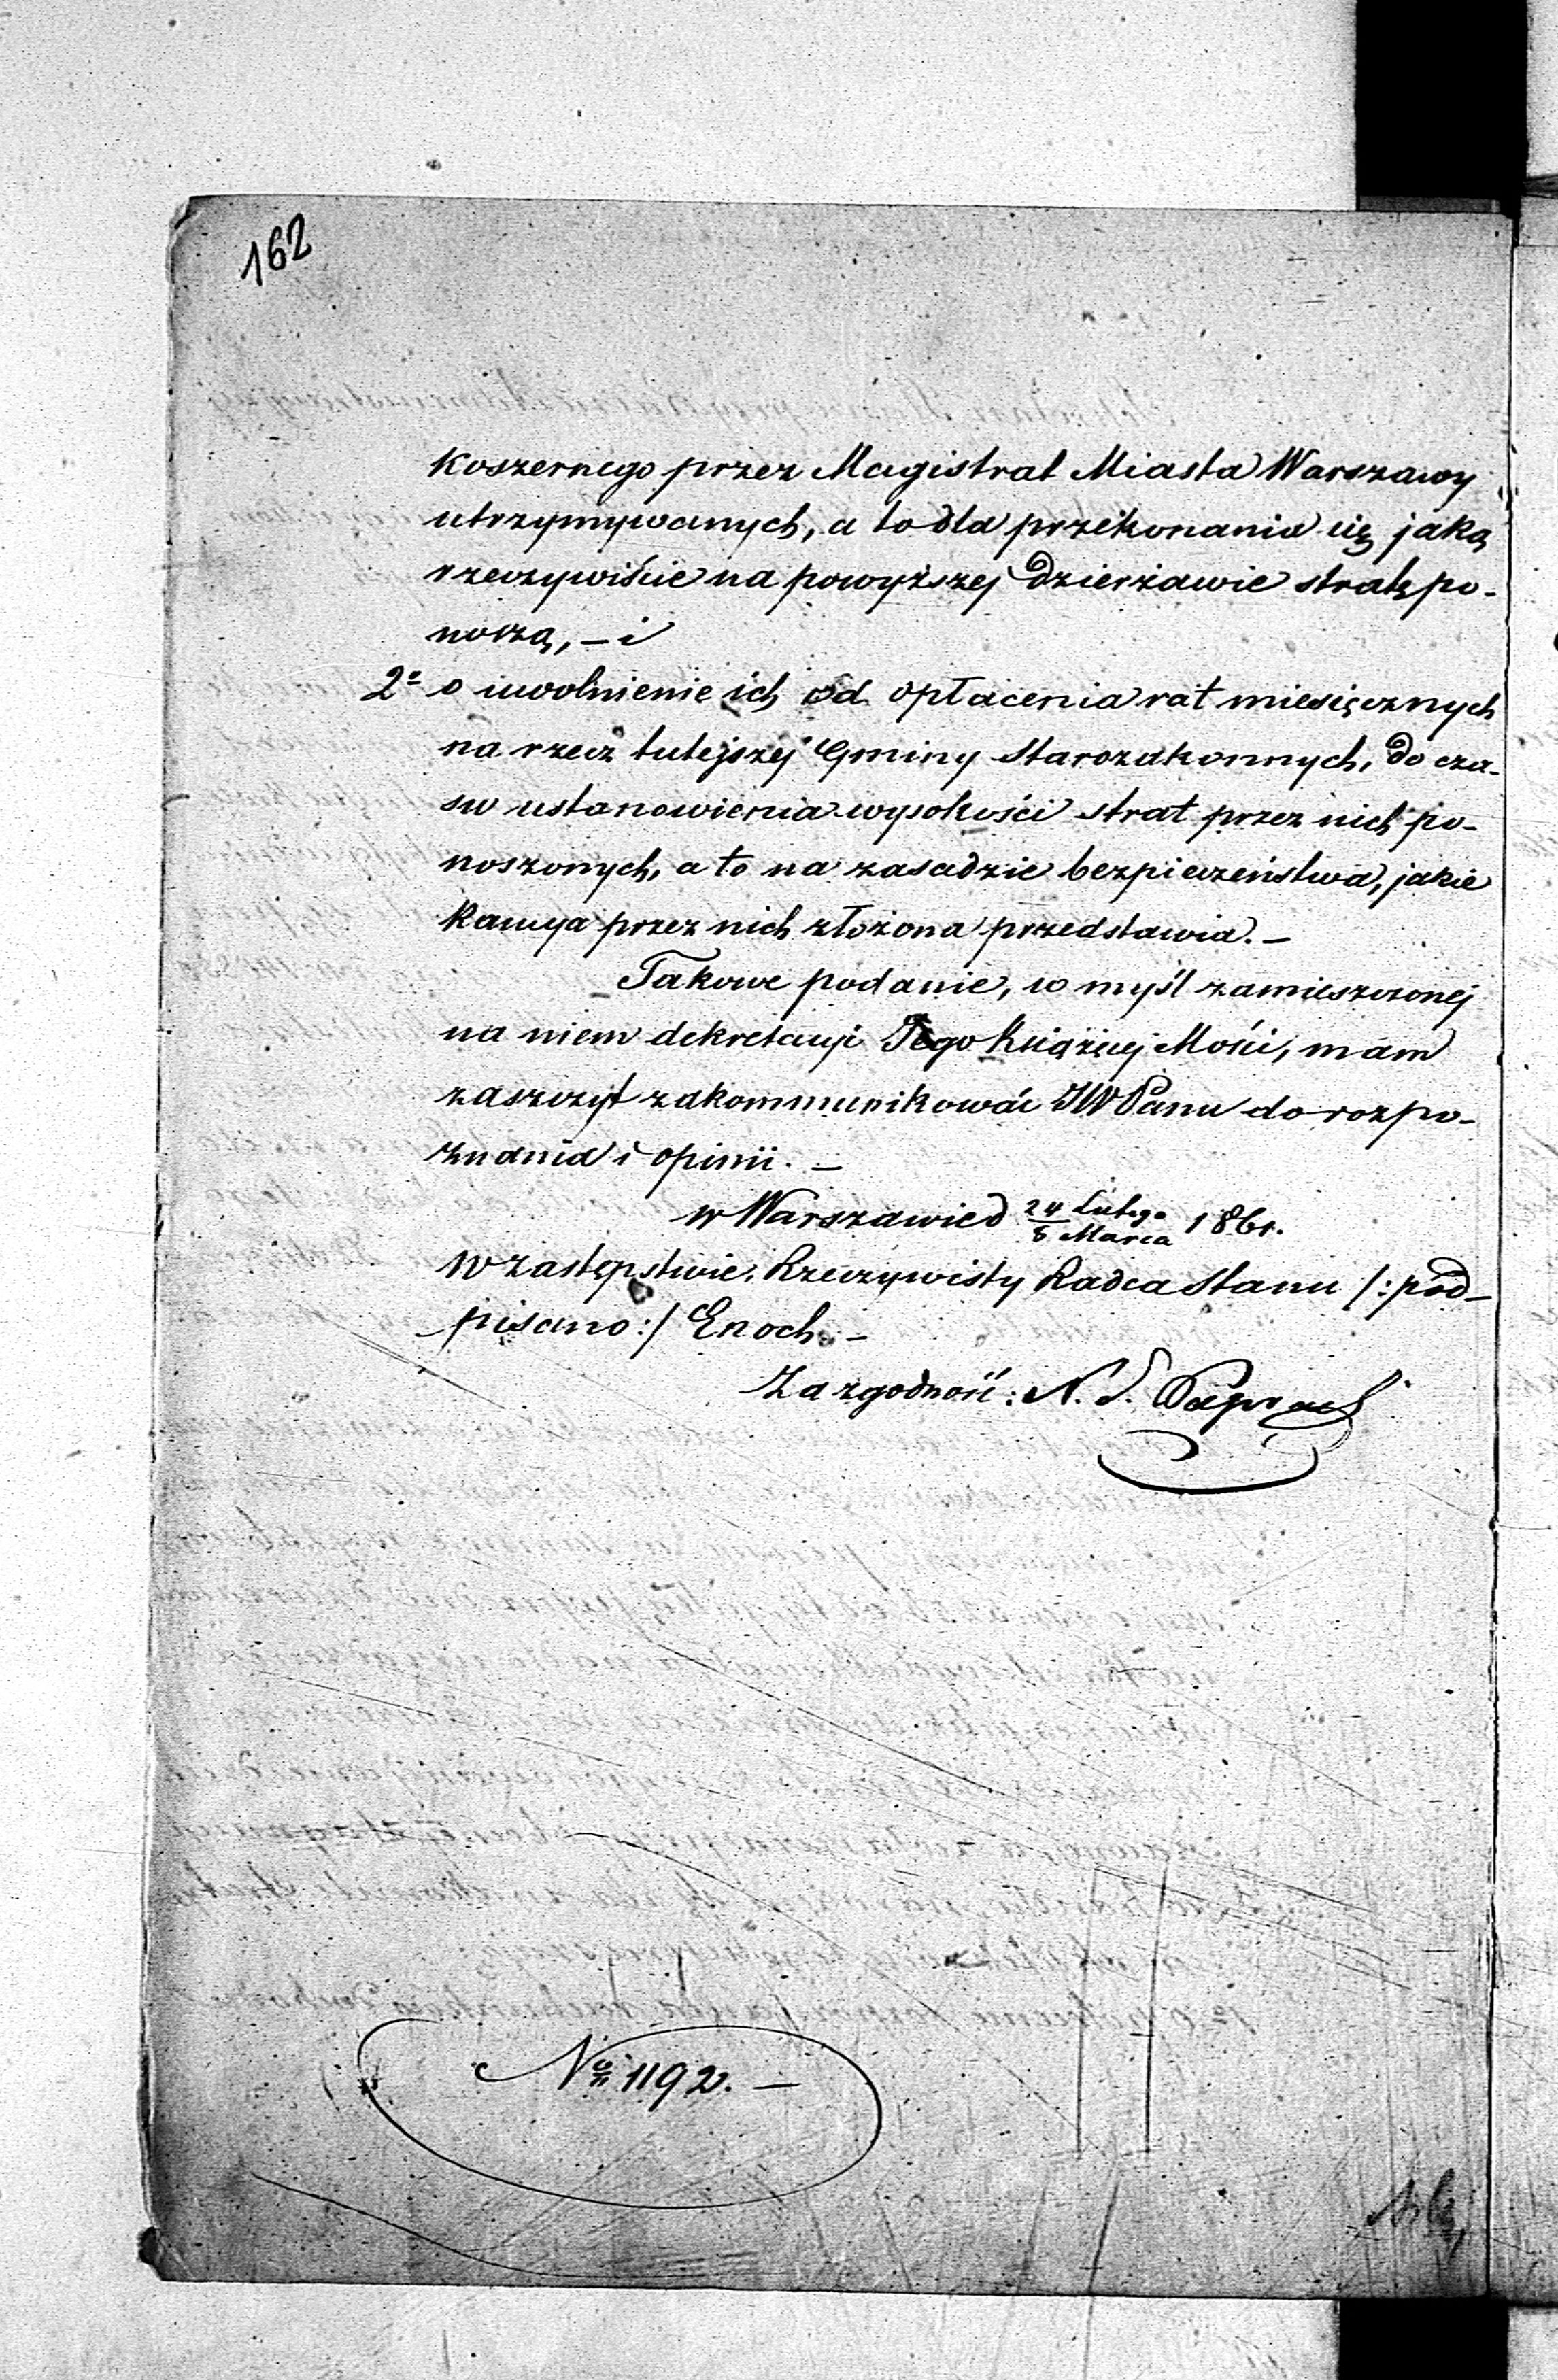 162
Koszernego przez Magistrat Miasta Warszawy
utrzymywanych, a to dla przekonania się jaką
rzeczywiście na powyższej Dzierżawie stratę po-
noszą, – i
2º o uwolnienie ich od opłacenia rat miesięcznych
na rzecz tutejszej Gminy Starozakonnych, do cza-
su ustanowienia wysokości strat przez nich po-
noszonych, a to na zasadzie bezpieczeństwa, jakie
Kaucya przez nich złożona przedstawia. –
Takowe podanie, w myśl zamieszczonej
na niem dekretacyi Jego Książęcej Mości, mam
zaszczyt zakommunikować JW Panu do rozpo-
znania i opinii. –
w Warszawie d 24 Lutego / 8 Marca 1861.
W zastępstwie, Rzeczywisty Radca Stanu /: pod-
pisano :/ Enoch. –
Za zgodność: N. S.
Nº 1192. –